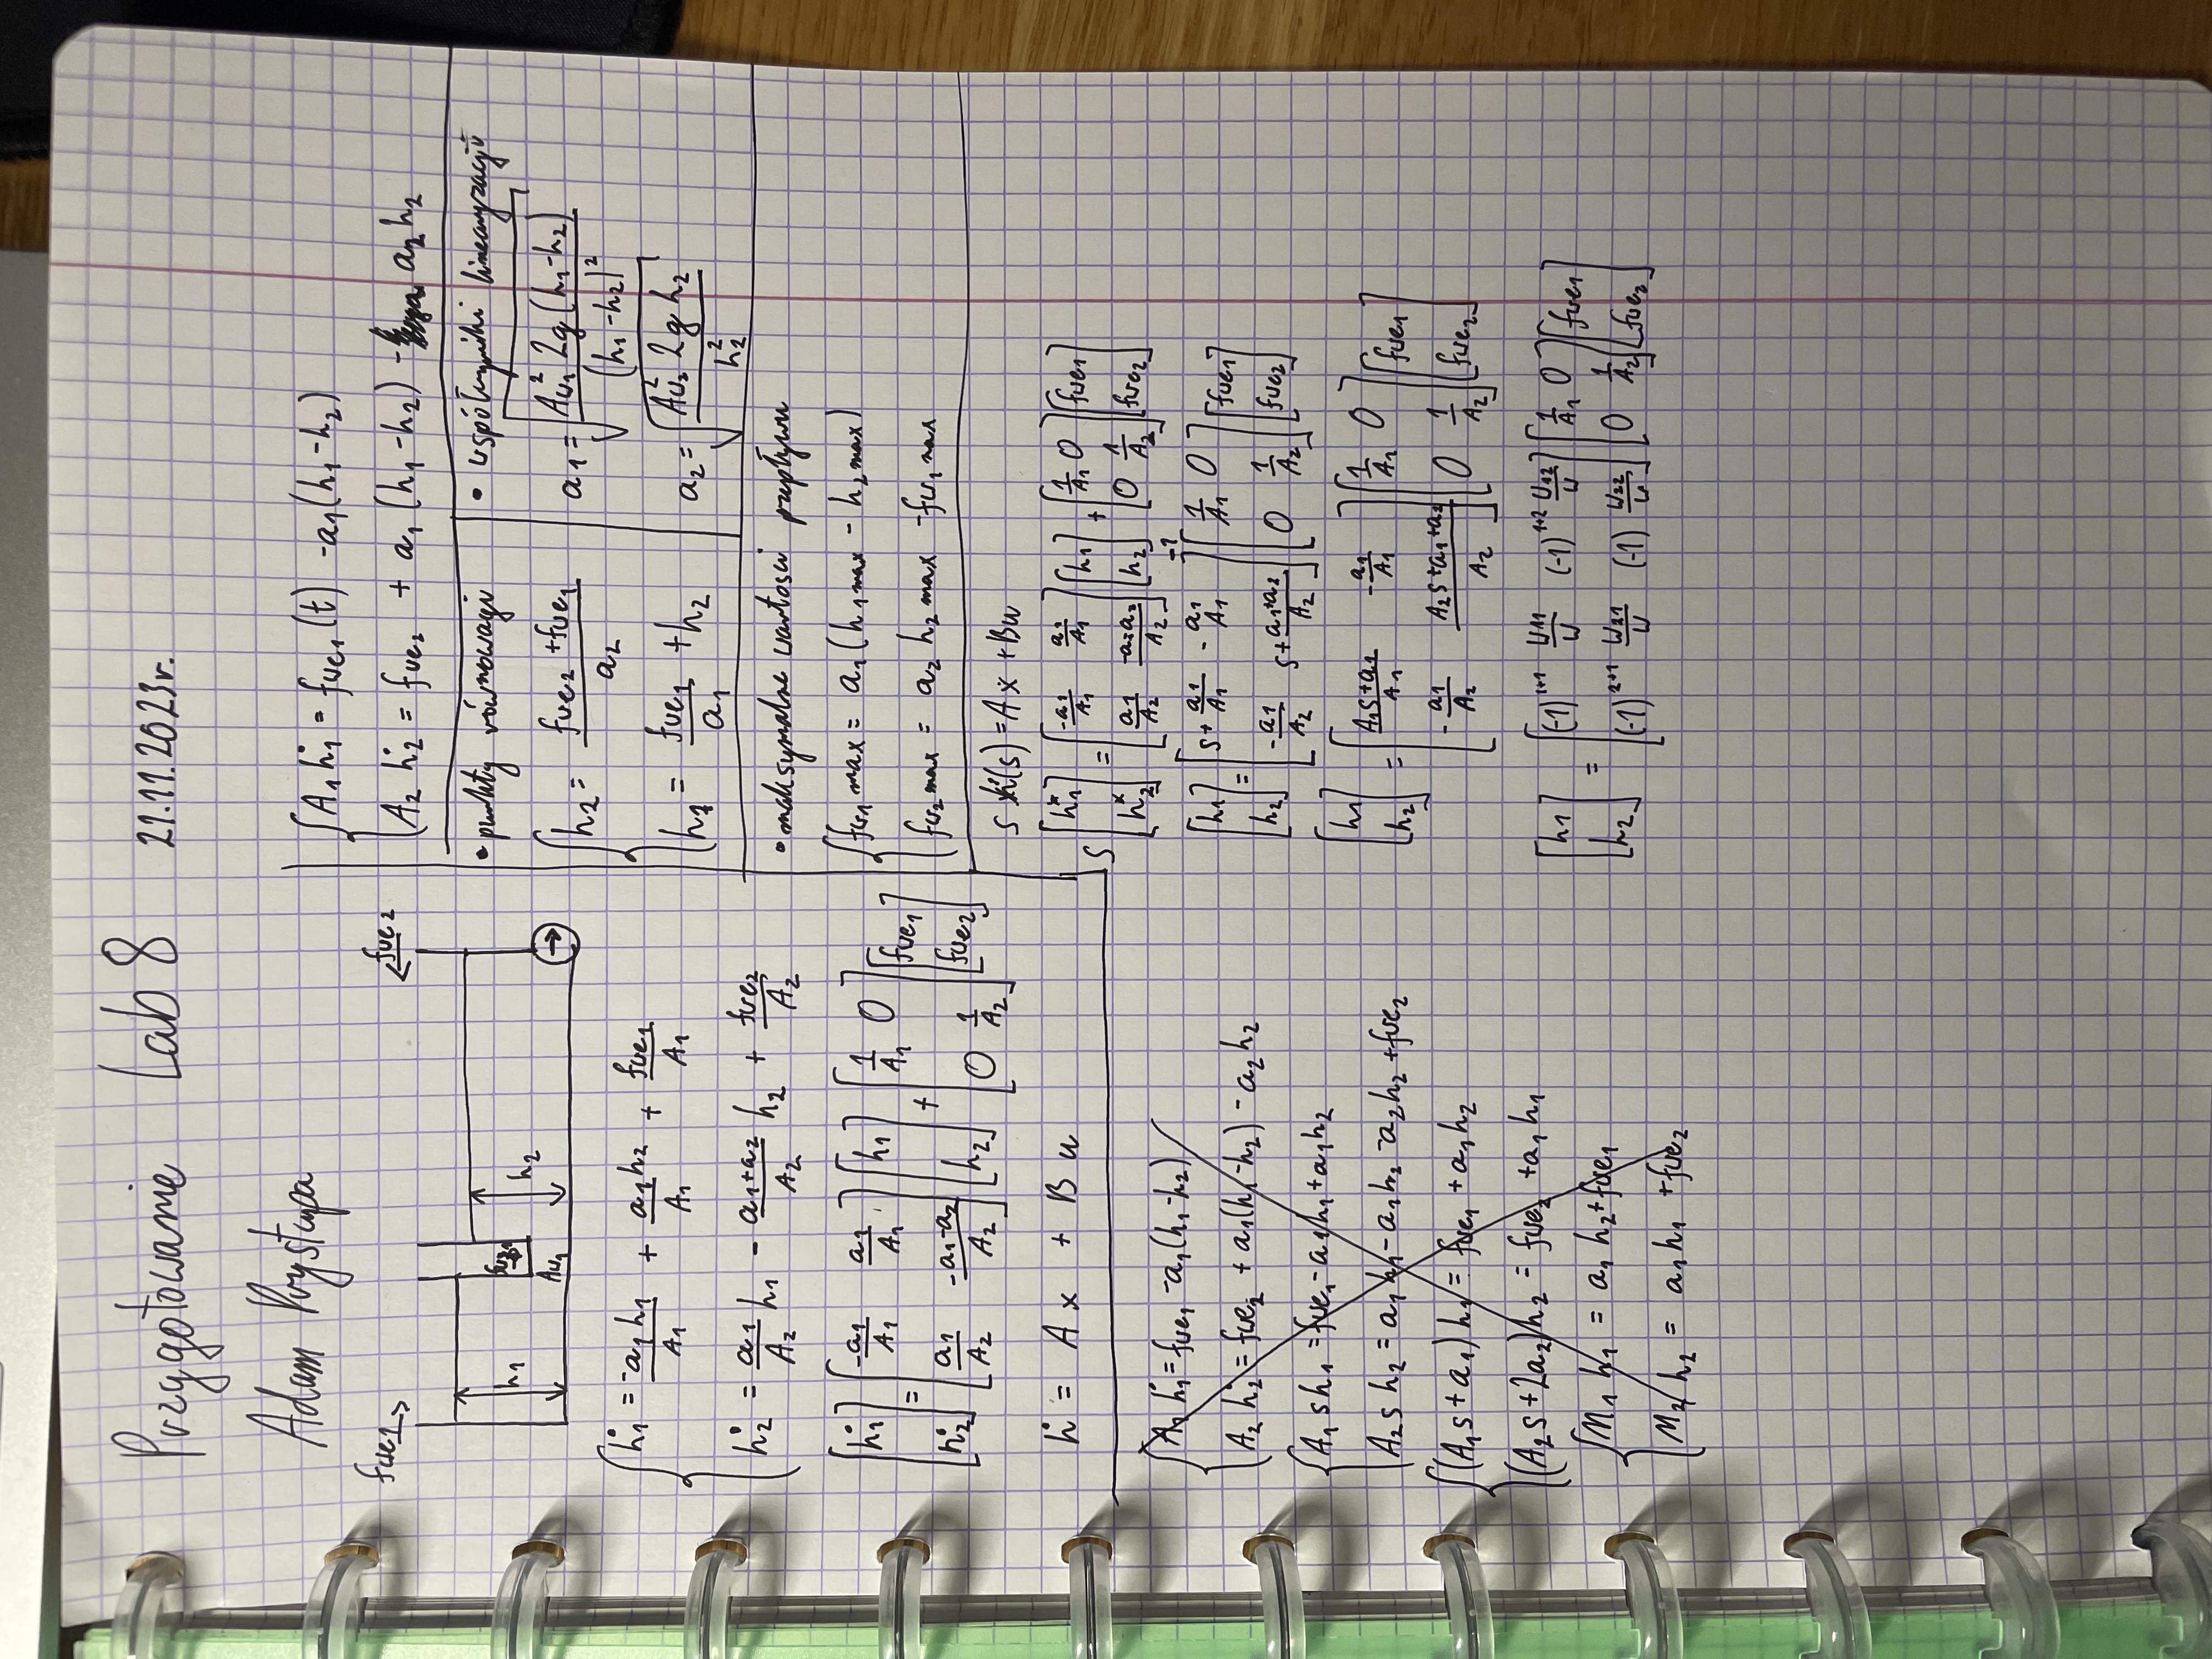 Przygotowanie Lab 8 21.11.2023r.
Adam Prystupa
fwe1 → ← fwe2
h1 fw1 → h2
Aw1
{ ḣ1 = -a1 h1 / A1 + a1 h2 / A1 + fwe1 / A1
ḣ2 = a1 / A2 h1 - a1+a2 / A2 h2 + fwe2 / A2
[ḣ1 ḣ2] = [-a1/A1 a1/A1 ; a1/A2 -a1-a2/A2] [h1 h2] + [1/A1 0 ; 0 1/A2] [fwe1 fwe2]
ḣ = A x + B u
{ A1 ḣ1 = fwe1 - a1(h1-h2)
A2 ḣ2 = fwe2 + a1(h1-h2) - a2 h2
{ A1 s h1 = fwe1 - a1 h1 + a1 h2
A2 s h2 = a1 h1 - a1 h2 - a2 h2 + fwe2
{ (A1 s + a1) h1 = fwe1 + a1 h2
(A2 s + 2a2) h2 = fwe2 + a1 h1
{ M1 h1 = a1 h2 + fwe1
M2 h2 = a1 h1 + fwe2
{ A1 ḣ1 = fwe1(t) - a1(h1-h2)
A2 ḣ2 = fwe2 + a1(h1-h2) - a2 h2
• punkty równowagi
{ h2 = fwe2 + fwe1 / a2
h1 = fwe1 / a1 + h2
• współczynniki linearyzacji
a1 = √(Aw1² 2g (h1-h2) / (h1-h2)²)
a2 = √(Aw2² 2g h2 / h2²)
• maksymalne wartości przepływu
{ fw1 max = a1 (h1 max - h2 max)
fw2 max = a2 h2 max - fw1 max
s (s) = A x + B u
s [h1 h2] = [-a1/A1 a1/A1 ; a1/A2 -a2 a2/A2] [h1 h2] + [1/A1 0 ; 0 1/A2] [fwe1 fwe2]
[h1 h2] = [s + a1/A1 - a1/A1 ; - a1/A2 s + a1+a2/A2]⁻¹ [1/A1 0 ; 0 1/A2] [fwe1 fwe2]
[h1 h2] = [A1s+a1/A1 - a1/A1 ; - a1/A2 A2s+a1+a2/A2] [1/A1 0 ; 0 1/A2] [fwe1 fwe2]
[h1 h2] = [(-1)¹⁺¹ W11/W (-1)¹⁺² W12/W ; (-1)²⁺¹ W21/W (-1) W22/W] [1/A1 0 ; 0 1/A2] [fwe1 fwe2]